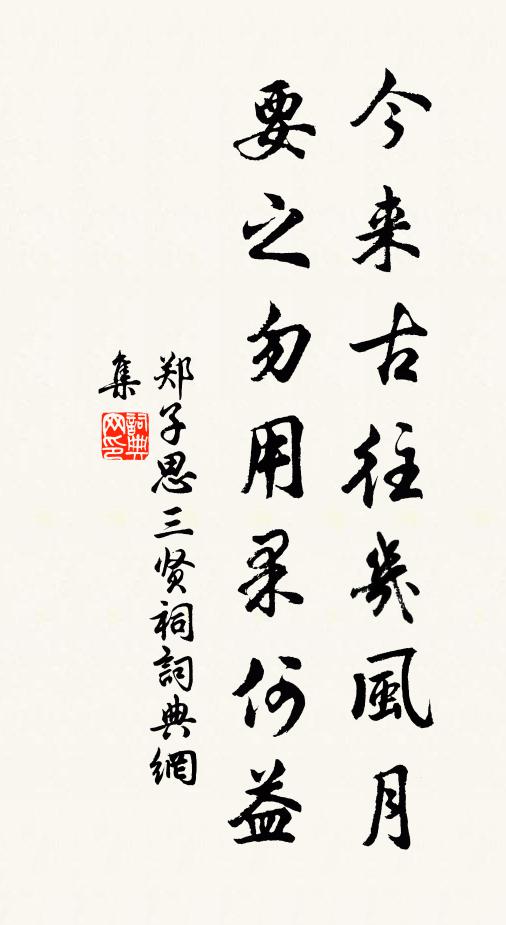 今来古往幾風月
要之勿用果何益
郑子思三贤祠詞典網
集
詞典
网印